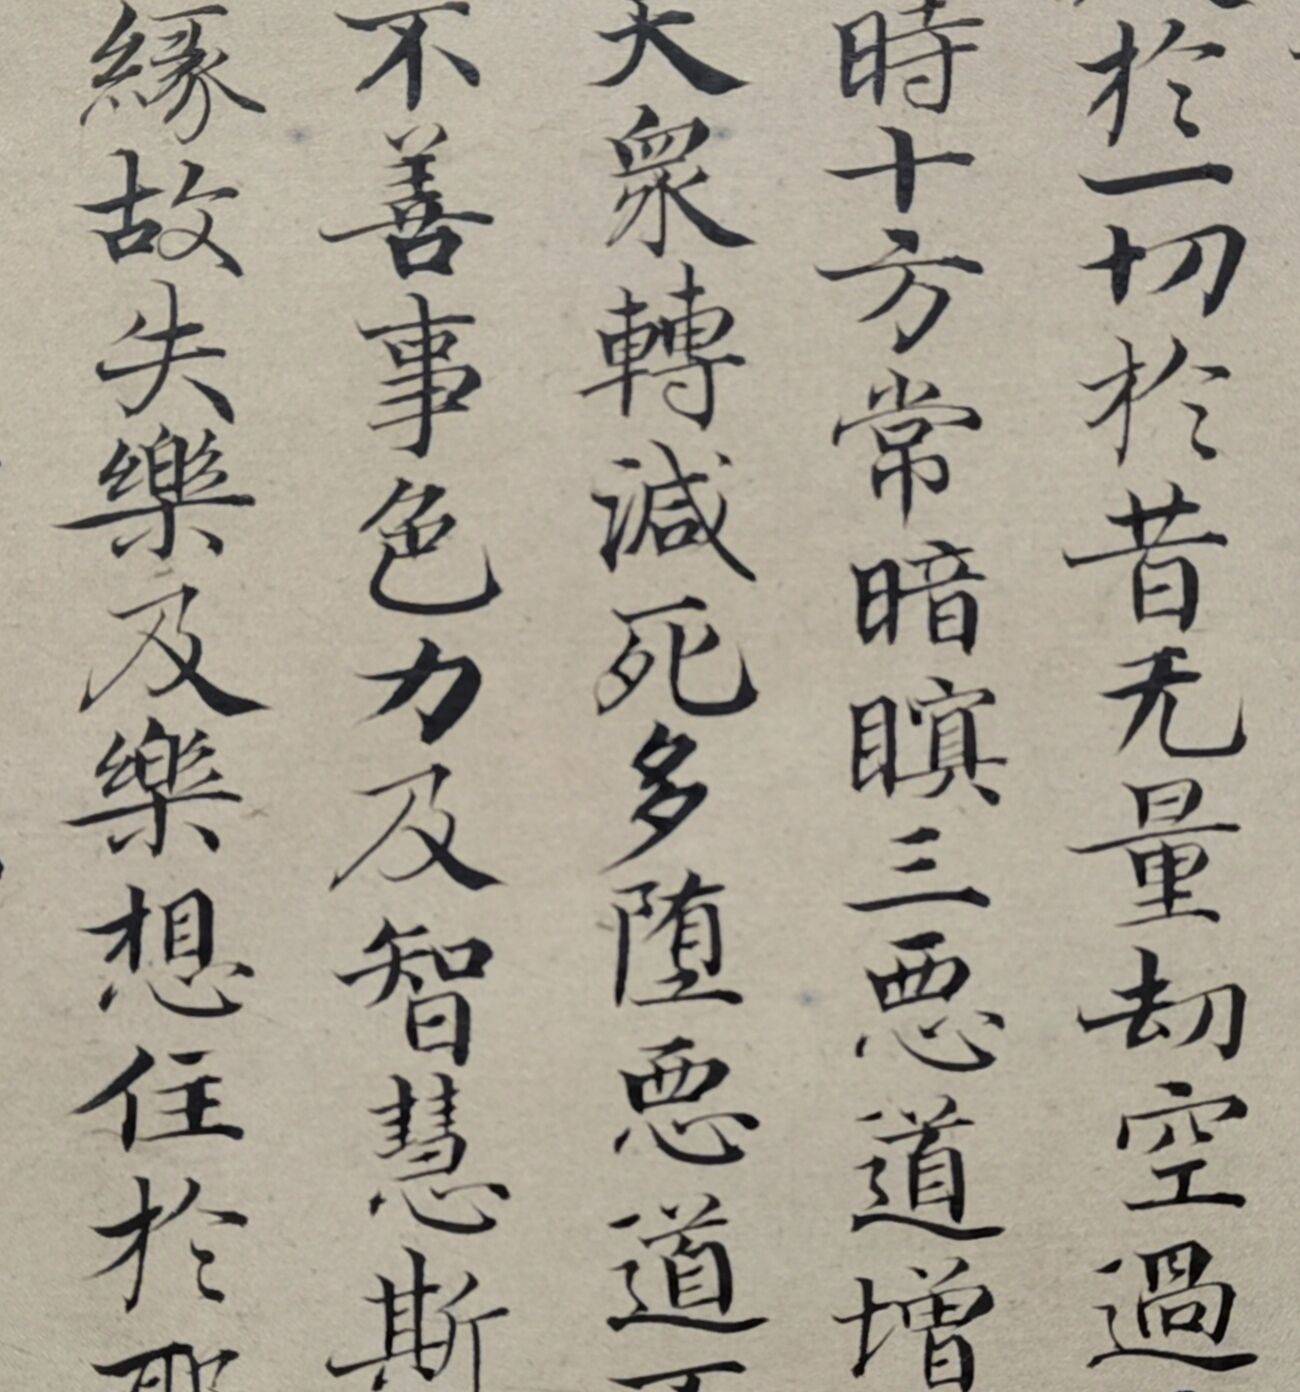 於一切於昔无量劫空過
時十方常暗瞑三惡道增
大衆轉減死多堕惡道
不善事色力及智慧斯
緣故失樂及樂想住於